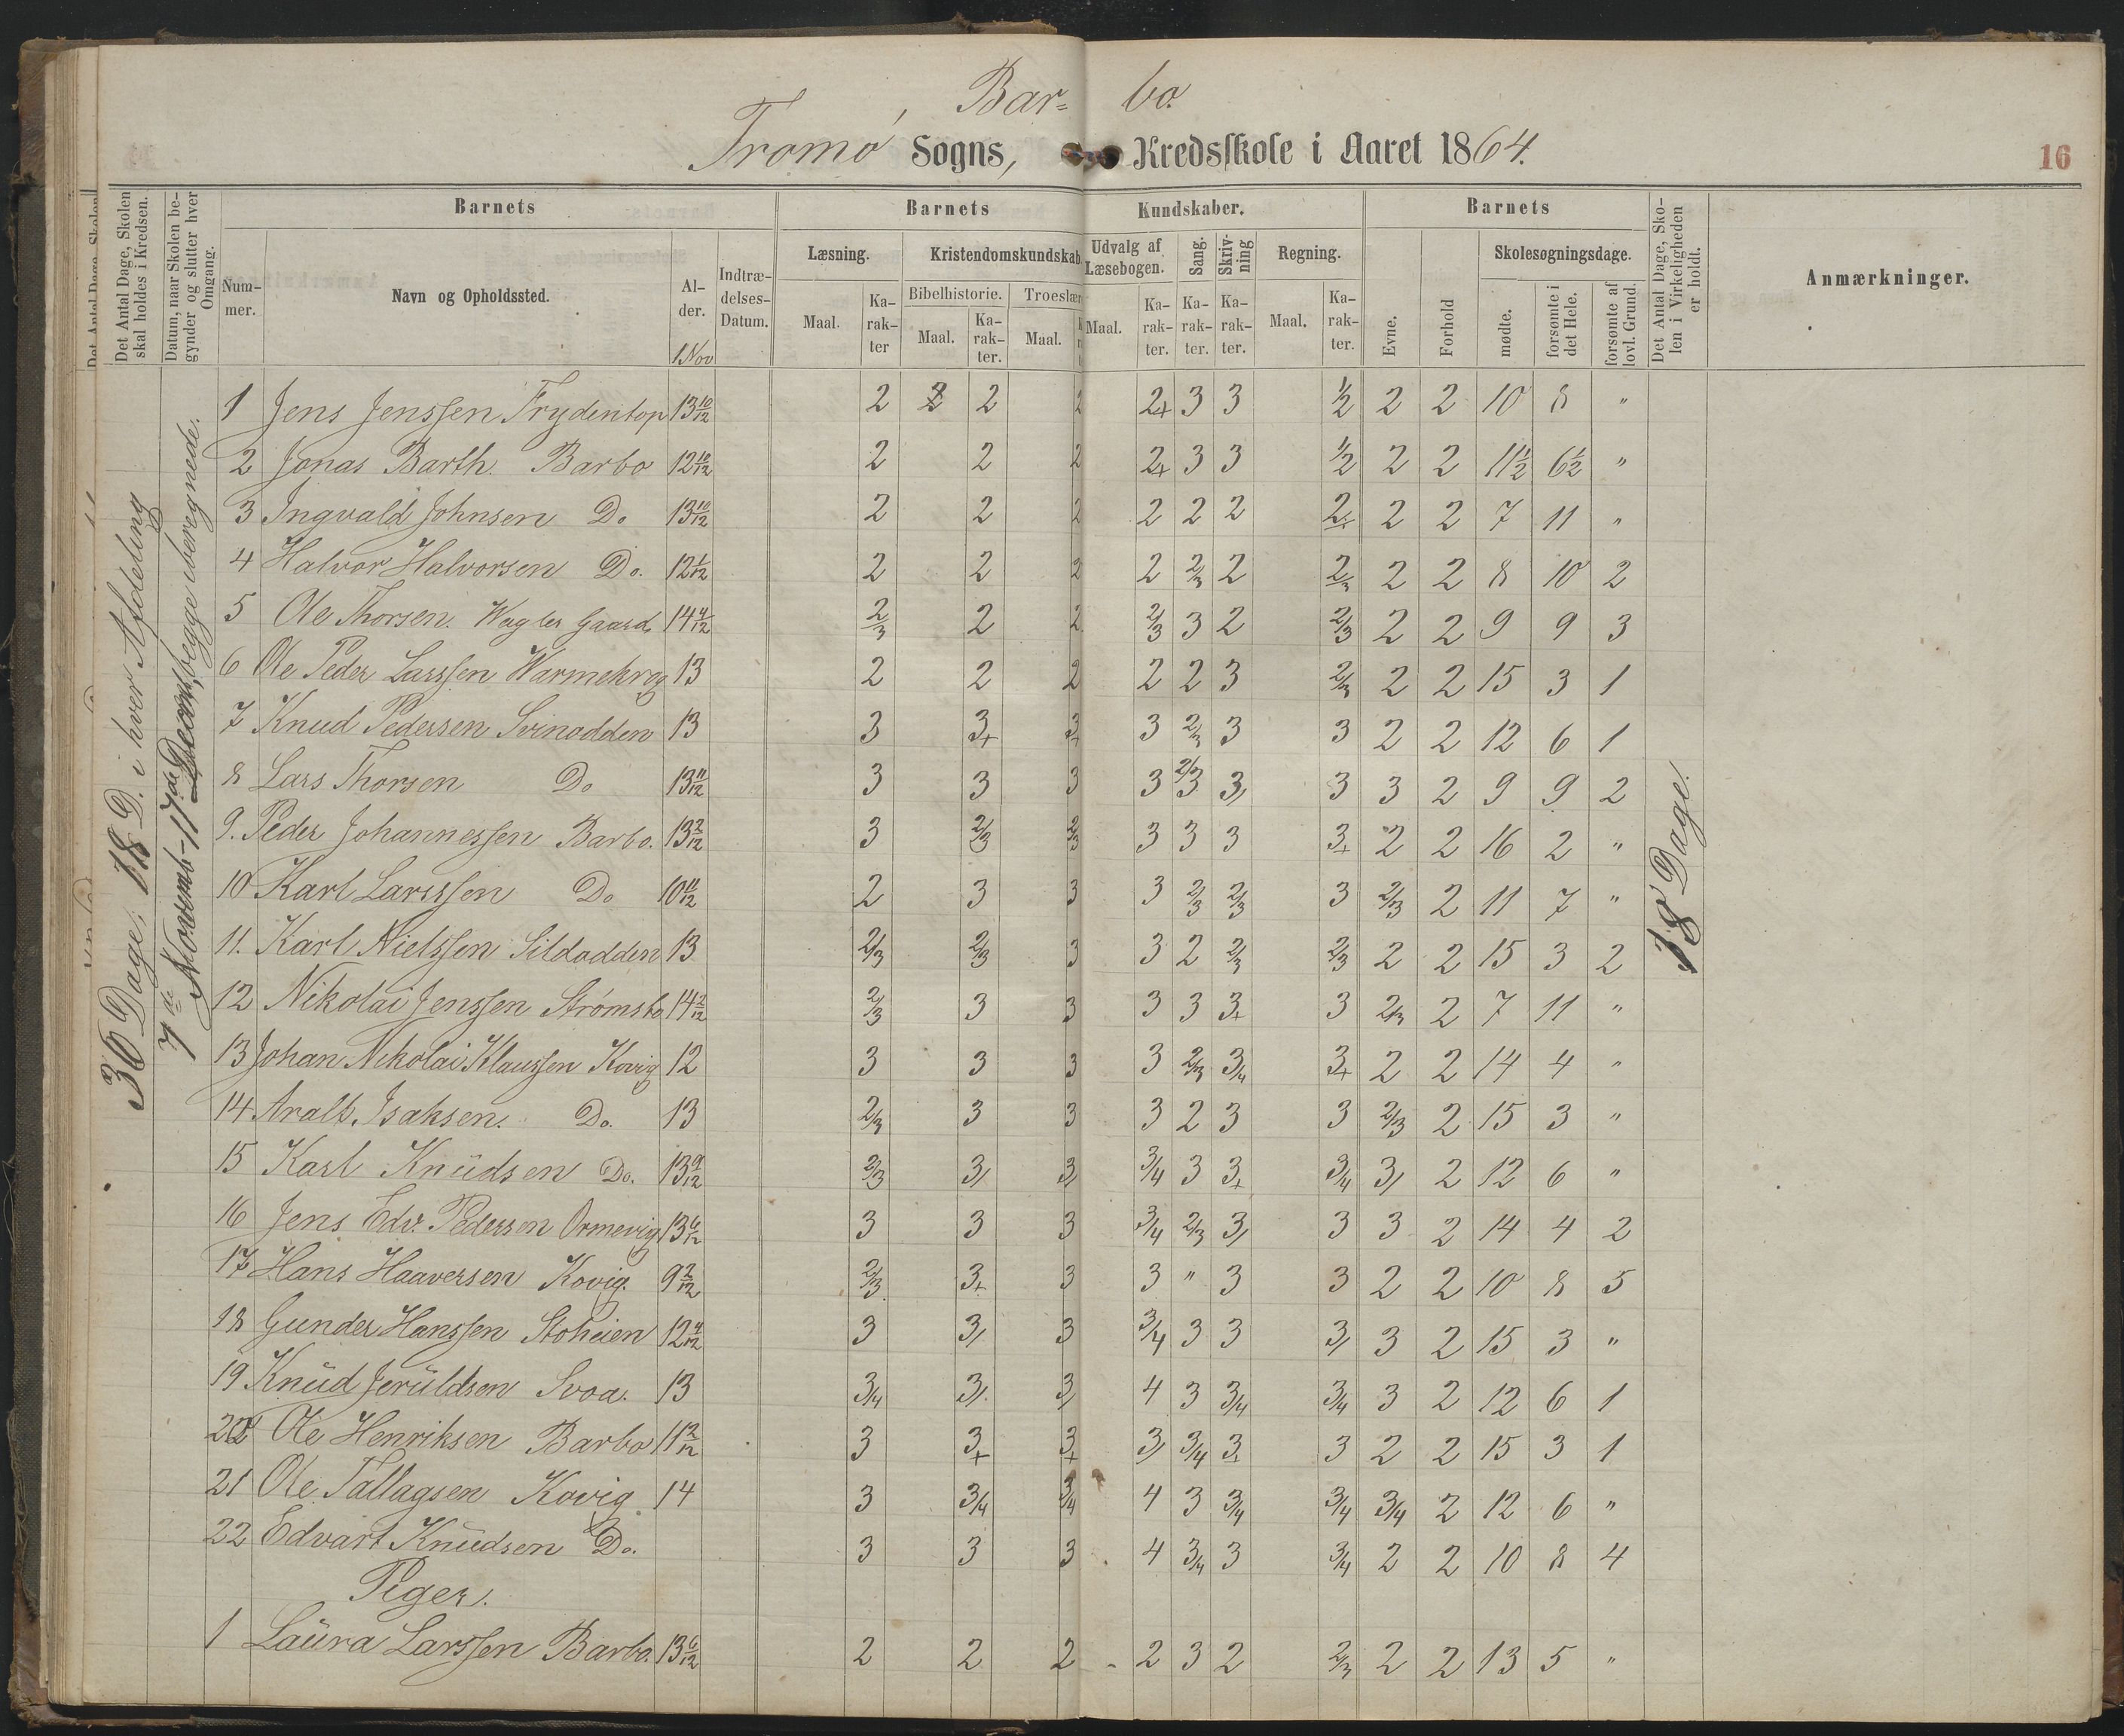 Bar= bo.
Tromø Sogns, Kredsskole i Aaret 1864.
16
Det Antal Dage, Skolen skal holdes i Kredsen.
Datum, naar Skolen begynder og slutter hver Omgang.
Barnets
Barnets Kundskaber.
Barnets
Det Antal Dage, Skolen i Virkeligheden er holdt.
Anmærkninger.
Nummer.
Navn og Opholdssted.
Alder. 1 Nov
Indtrædelses-Datum.
Læsning.
Kristendomskundskab.
Udvalg af Læsebogen.
Sang.
Skrivning
Regning.
Evne.
Forhold
Skolesøgningsdage.
Bibelhistorie.
Troeslær
Maal. Karakter Maal. Karakter. Maal. Maal. Karakter. Karakter. Karakter. Maal. Karakter.
mødte. forsømte i det Hele. forsømte af lovl. Grund.
36 Dage, 18 D. i hver Afdeling
7de Novemb-17de Decemb, begge iberegnede.
1 Jens Jenssen Frydentop 13 10/12 2 2 2 2 2+ 3 3 1/2 2 2 10 8 "
2 Jonas Barth. Barbo 12 10/12 2 2 2 2+ 3 3 1/2 2 2 11½ 6½ "
3 Ingvald Johnsen Do 13 10/12 2 2 2 2 2 2 2+ 2 2 7 11 "
4 Halvor Halvorsen Do. 12 1/12 2 2 2 2 2/3 2 2/3 2 2 8 10 2
5 Ole Thorsen. Wagles Gaard 14 4/12 2/3 2 2 2/3 3 2 2/3 2 2 9 9 3
6 Ole Peder Larssen Warmekrog 13 2 2 2 2 2 3 2/3 2 2 15 3 1
7 Knud Pedersen Svinodden 13 3 3+ 3+ 3 2/3 3 3 2 2 12 6 1
8 Lars Thorsen Do 13 11/12 3 3 3 3 2/3 3/ 3 3 2 9 9 2
9. Peder Johannessen Barbo. 13 2/12 3 2/3 2/3 3 3 3 3+ 2 2 16 2 "
10 Karl Larsssen Do 10 11/12 2 3 3 3 2/3 2/3 3 2/3 2 11 7 "
11. Karl Nielssen Sildodden 13 2/3 2/3 3 3 2 2/3 2/3 2 2 15 3 2
12 Nikolai Jenssen Strømsbo 14 2/12 2/3 3 3 3 3 3+ 3 2/3 2 7 11 "
13 Johan Nikolai Klaussen Kovig 12 3 3 3 3 2/3 3/4 3+ 2 2 14 4 "
14 Aralb. Isaksen. Do. 13 2/3 3 3 3 2 3 3 2/3 2 15 3 "
15 Karl Knüdsen Do. 13 9/12 2/3 3/ 3/ 3/4 3 3+ 3/4 3/ 2 12 6 "
16 Jens Edv. Pedersen Ormevig 13 6/12 3 3 3 3/4 2/3 3/ 3 3 2 14 4 2
17 Hans Haaversen Kovig. 9 2/12 2/3 3+ 3 3 " 3 3 2 2 10 8 5
18 Gunder Hanssen Stoheien 12 4/12 3 3/ 3 3/4 3 3 3/ 3 2 15 3 "
19 Knüd Jerüldsen Svoa. 13 3/4 3/ 3/ 4 3 3/4 3/4 3 2 12 6 1
20 Ole Henriksen Barbo 11 2/12 3 3+ 3+ 3/ 3/4 3+ 3 2 2 15 3 1
21 Ole Tallagsen Kovig 14 3 3/4 3/4 4 3 3/4 3/4 3/4 2 12 6 "
22 Edvart Knüdsen Do. 3 3 3 4 3/4 3 3/4 2 2 10 8 4
Piger.
1 Laüra Larssen Barbo. 13 6/12 2 2 2 2 3 2 2/3 2 2 13 5 "
18 Dage.